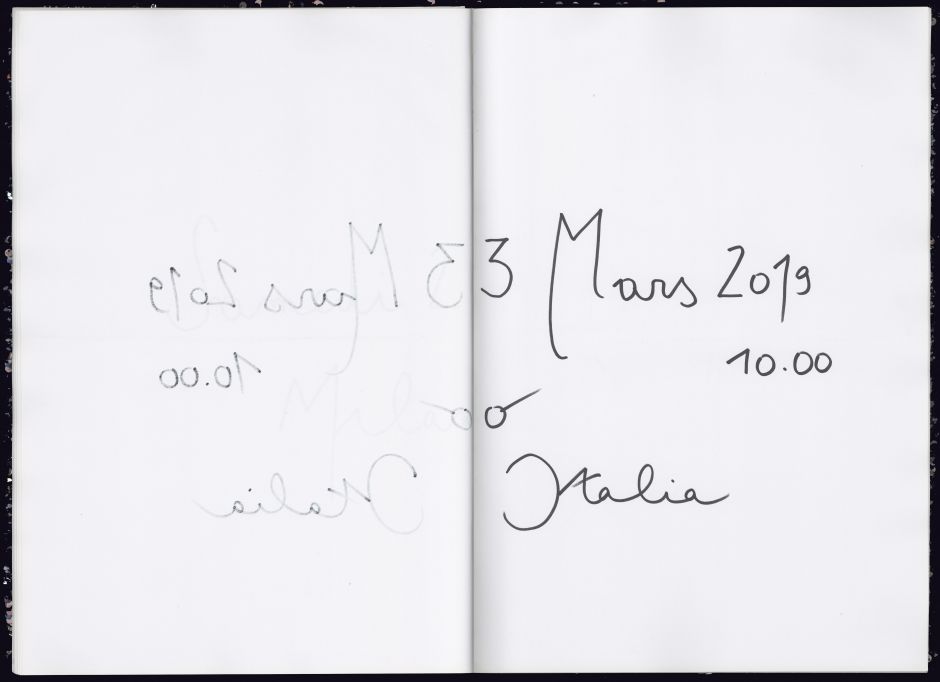 3 Mars 2019
10.00
o
Italia